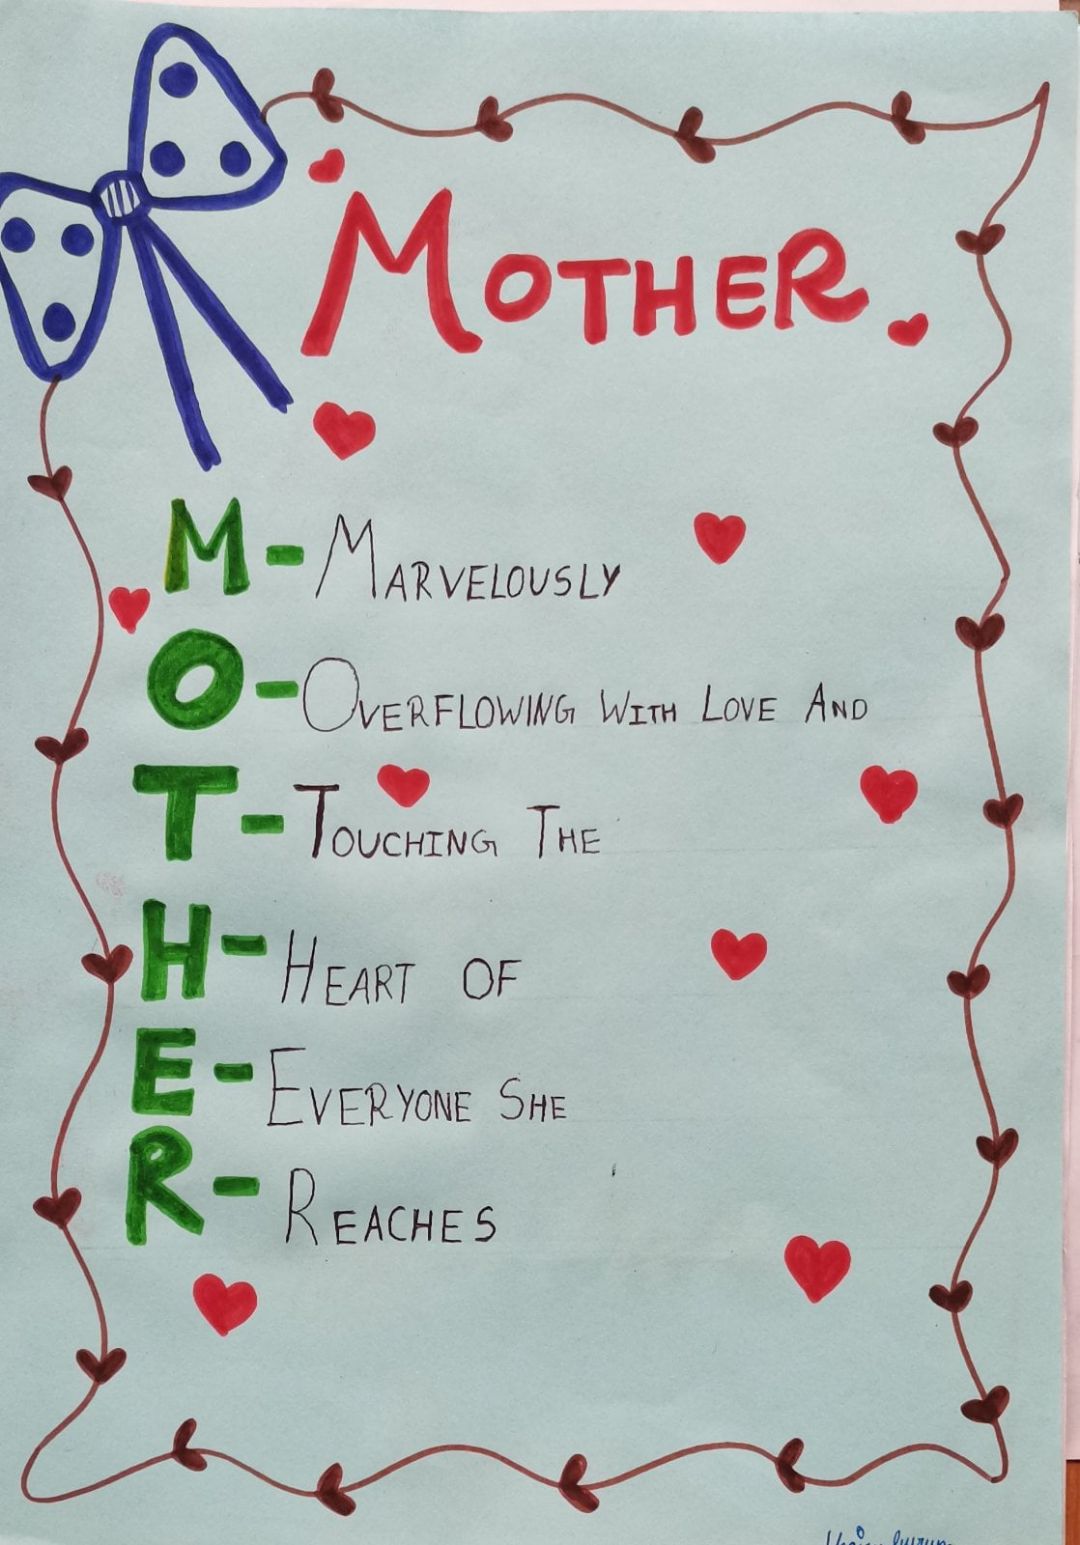 MOTHER
M-MARVELOUSLY
O-OVERFLOWING WITH LOVE AND
T-TOUCHING THE
H-HEART OF
E-EVERYONE SHE
R-REACHES